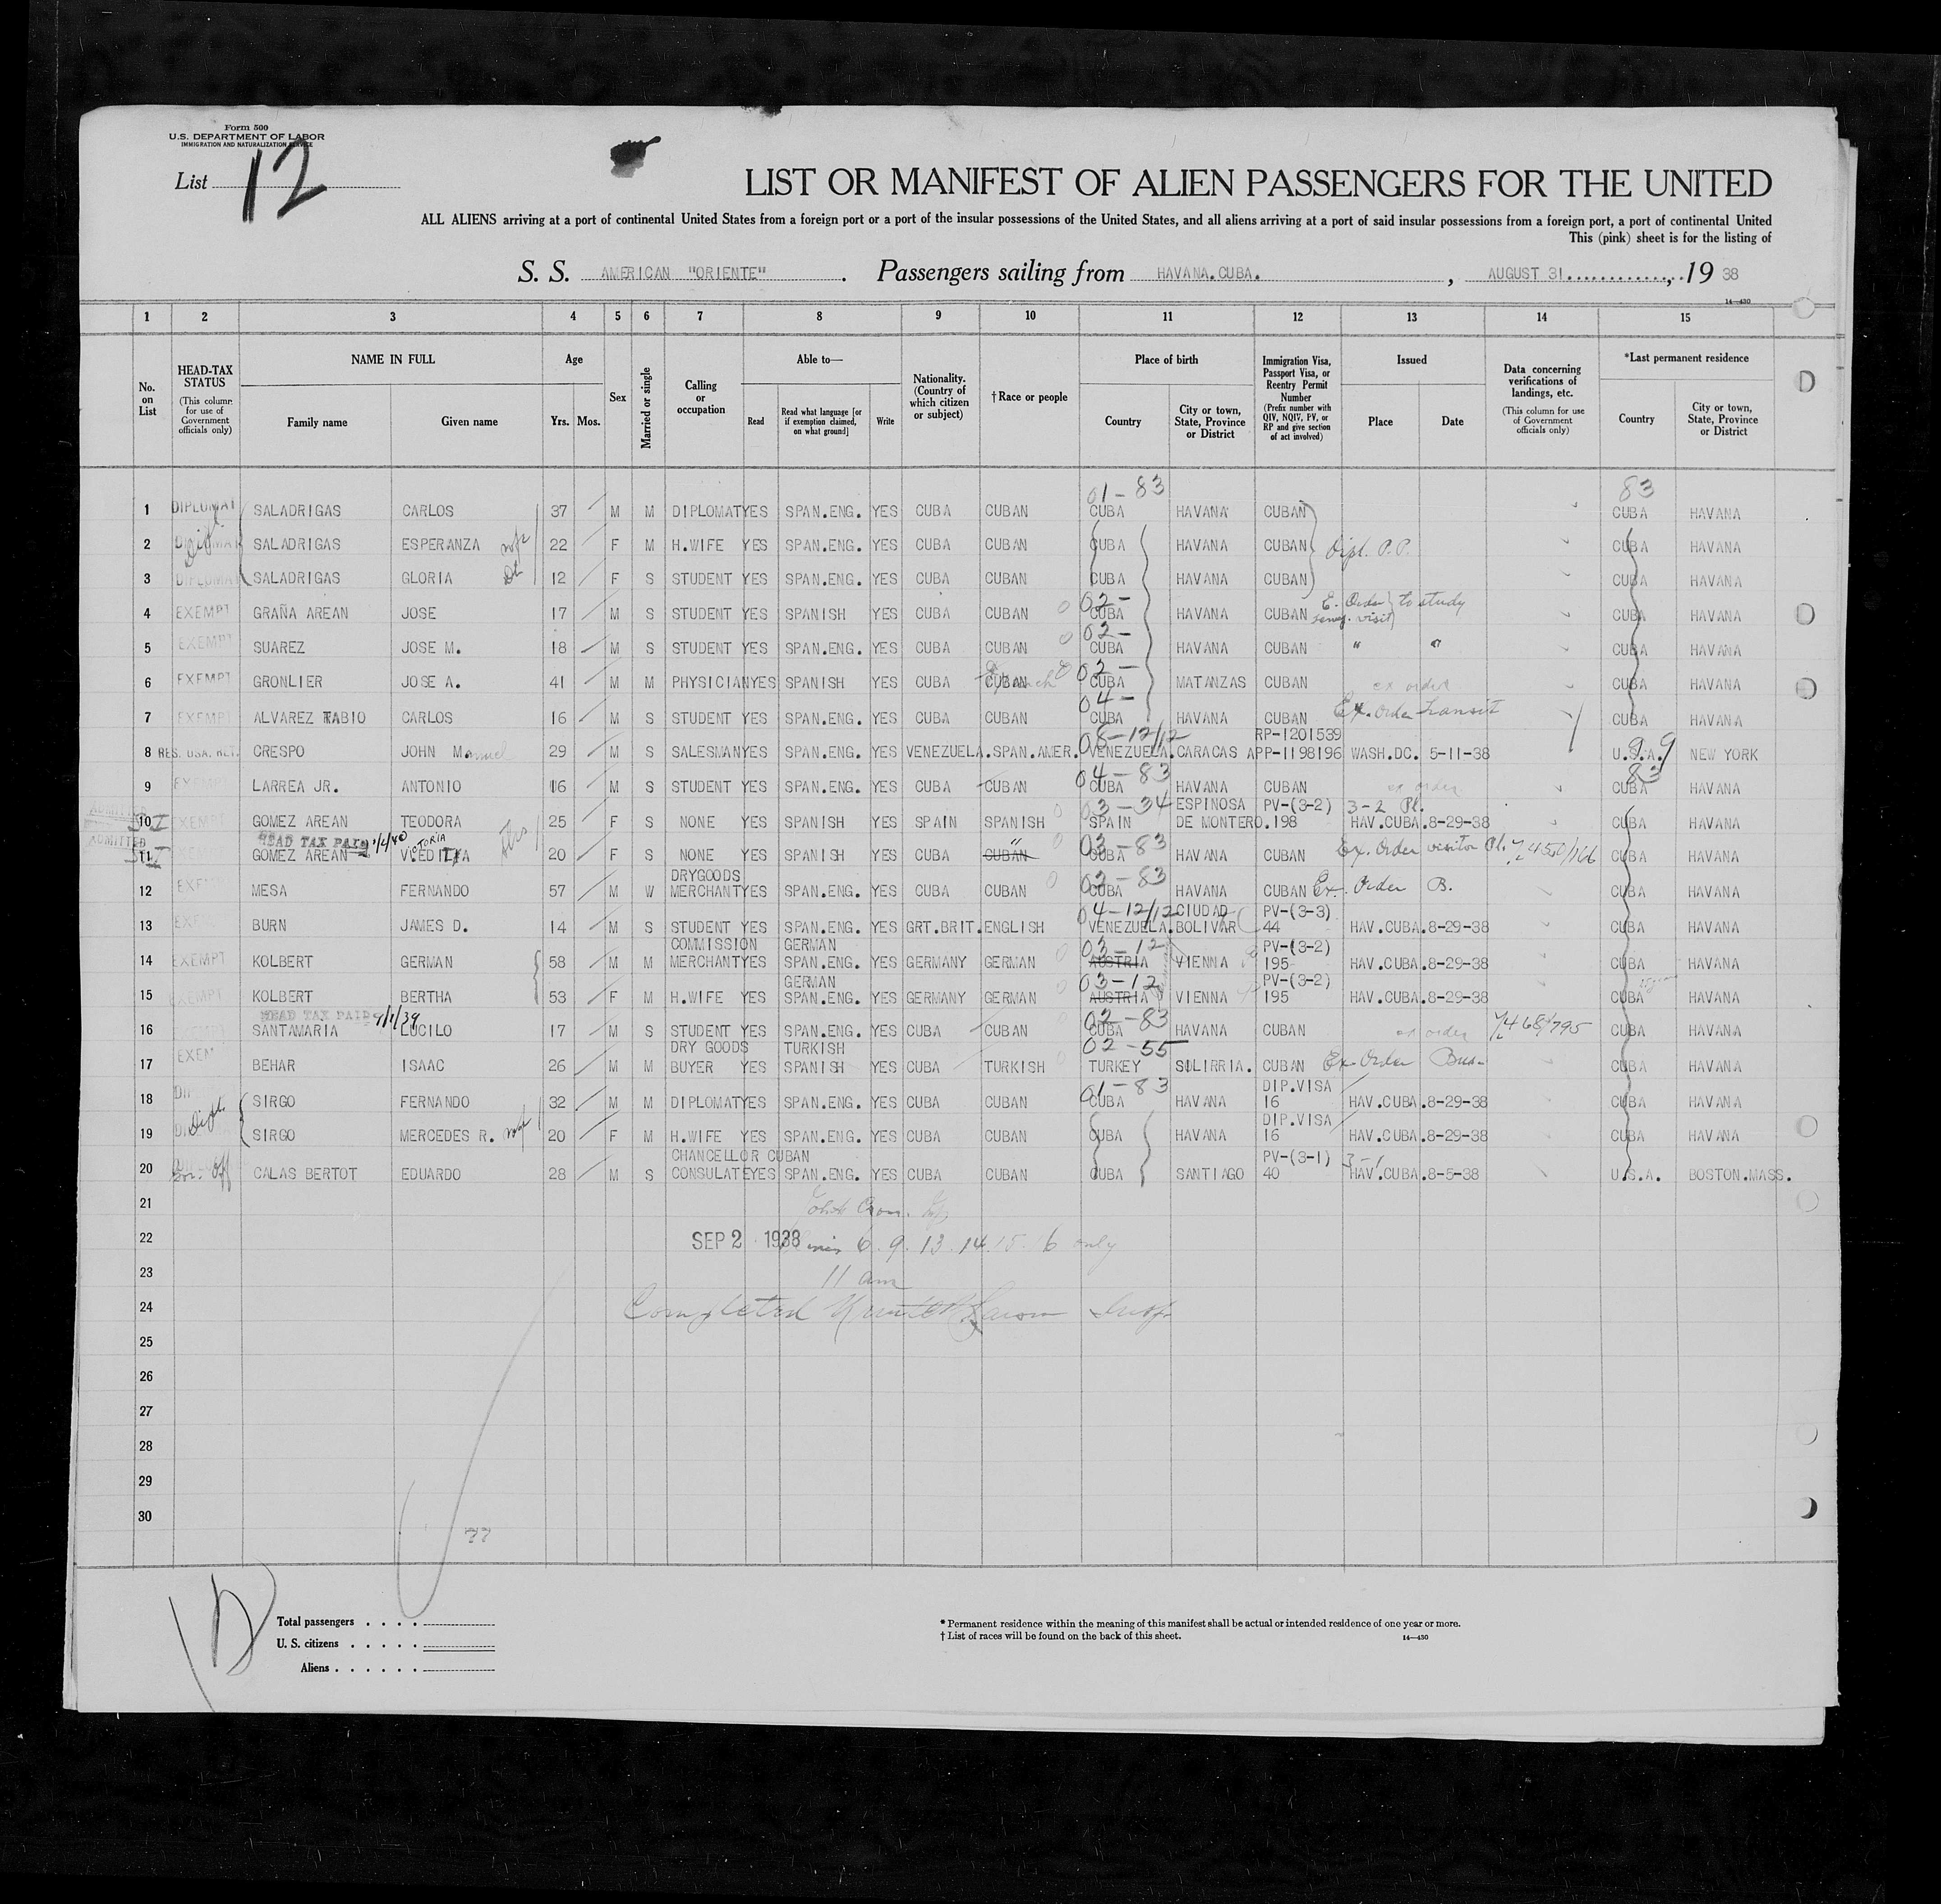 Form 500
U.S. DEPARTMENT OF LABOR
IMMIGRATION AND NATURALIZATION SERVICE
List 12
LIST OR MANIFEST OF ALIEN PASSENGERS FOR THE UNITED
ALL ALIENS arriving at a port of continental United States from a foreign port or a port of the insular possessions of the United States, and all aliens arriving at a port of said insular possessions from a foreign port, a port of continental United
This (pink) sheet is for the listing of
S. S. AMERICAN "ORIENTE" . Passengers sailing from HAVANA.CUBA. , AUGUST 31 , 19 38
14—430
1 2 3 4 5 6 7 8 9 10 11 12 13 14 15
No. on List
HEAD-TAX STATUS (This column for use of Government officials only)
NAME IN FULL
Family name Given name
Age
Yrs. Mos.
Sex
Married or single
Calling or occupation
Able to—
Read Read what language [or if exemption claimed, on what ground] Write
Nationality. (Country of which citizen or subject)
†Race or people
Place of birth
Country City or town, State, Province or District
Immigration Visa, Passport Visa, or Reentry Permit Number (Prefix number with QIV, NQIV, PV, or RP and give section of act involved)
Issued
Place Date
Data concerning verifications of landings, etc. (This column for use of Government officials only)
*Last permanent residence
Country City or town, State, Province or District
01-83 83
1 DIPLOMAT SALADRIGAS CARLOS 37 M M DIPLOMAT YES SPAN.ENG. YES CUBA CUBAN CUBA HAVANA CUBAN CUBA HAVANA
2 SALADRIGAS ESPERANZA wife 22 F M H.WIFE YES SPAN.ENG. YES CUBA CUBAN CUBA HAVANA CUBAN Dipl. P.P. CUBA HAVANA
3 DIPLOMAT SALADRIGAS GLORIA Dt 12 F S STUDENT YES SPAN.ENG. YES CUBA CUBAN CUBA HAVANA CUBAN CUBA HAVANA
02- E. Order to study
4 EXEMPT GRAÑA AREAN JOSE 17 M S STUDENT YES SPANISH YES CUBA CUBAN CUBA HAVANA CUBAN visit CUBA HAVANA
02-
5 EXEMPT SUAREZ JOSE M. 18 M S STUDENT YES SPAN.ENG. YES CUBA CUBAN CUBA HAVANA CUBAN " " CUBA HAVANA
02-
6 EXEMPT GRONLIER JOSE A. 41 M M PHYSICIAN YES SPANISH YES CUBA CUBAN CUBA MATANZAS CUBAN ex order CUBA HAVANA
04-
7 EXEMPT ALVAREZ TABIO CARLOS 16 M S STUDENT YES SPAN.ENG. YES CUBA CUBAN CUBA HAVANA CUBAN Ex. Order transit CUBA HAVANA
08-12/12 RP-1201539 99
8 RES. USA. RET. CRESPO JOHN Manuel 29 M S SALESMAN YES SPAN.ENG. YES VENEZUELA. SPAN.AMER. VENEZUELA. CARACAS APP-1198196 WASH.DC. 5-11-38 U.S.A. NEW YORK
04-83 83
9 EXEMPT LARREA JR. ANTONIO 16 M S STUDENT YES SPAN.ENG. YES CUBA CUBAN CUBA HAVANA CUBAN ex order CUBA HAVANA
ADMITTED 03-34 ESPINOSA PV-(3-2) 3-2 Pl.
10 EXEMPT GOMEZ AREAN TEODORA 25 F S NONE YES SPANISH YES SPAIN SPANISH SPAIN DE MONTERO. 198 HAV.CUBA. 8-29-38 CUBA HAVANA
ADMITTED HEAD TAX PAID 1/2/40 VICTORIA 03-83
11 GOMEZ AREAN 20 F S NONE YES SPANISH YES CUBA CUBAN " CUBA HAVANA CUBAN Ex. Order visitor Pl. CUBA HAVANA
DRYGOODS 02-83
12 MESA FERNANDO 57 M W MERCHANT YES SPAN.ENG. YES CUBA CUBAN CUBA HAVANA CUBAN Ex. Order B. CUBA HAVANA
04-12/12 CIUDAD PV-(3-3)
13 BURN JAMES D. 14 M S STUDENT YES SPAN.ENG. YES GRT.BRIT. ENGLISH VENEZUELA. BOLIVAR 44 HAV.CUBA. 8-29-38 CUBA HAVANA
COMMISSION GERMAN 03-12 PV-(3-2)
14 EXEMPT KOLBERT GERMAN 58 M M MERCHANT YES SPAN.ENG. YES GERMANY GERMAN AUSTRIA VIENNA 195 HAV.CUBA. 8-29-38 CUBA HAVANA
GERMAN 03-12 PV-(3-2)
15 EXEMPT KOLBERT BERTHA 53 F M H.WIFE YES SPAN.ENG. YES GERMANY GERMAN AUSTRIA VIENNA 195 HAV.CUBA. 8-29-38 CUBA HAVANA
HEAD TAX PAID 9/1/39 02-83
16 SANTAMARIA LUCILO 17 M S STUDENT YES SPAN.ENG. YES CUBA CUBAN CUBA HAVANA CUBAN ex order CUBA HAVANA
DRY GOODS TURKISH 02-55
17 BEHAR ISAAC 26 M M BUYER YES SPANISH YES CUBA TURKISH TURKEY CUBAN Ex Order Bus. CUBA HAVANA
01-83 DIP.VISA
18 SIRGO FERNANDO 32 M M DIPLOMAT YES SPAN.ENG. YES CUBA CUBAN CUBA HAVANA 16 HAV.CUBA. 8-29-38 CUBA HAVANA
Dipl. DIP.VISA
19 SIRGO MERCEDES R. wife 20 F M H.WIFE YES SPAN.ENG. YES CUBA CUBAN CUBA HAVANA 16 HAV.CUBA. 8-29-38 CUBA HAVANA
CHANCELLOR CUBAN PV-(3-1) 3-1
20 Off CALAS BERTOT EDUARDO 28 M S CONSULATE YES SPAN.ENG. YES CUBA CUBAN CUBA SANTIAGO 40 HAV.CUBA. 8-5-38 U.S.A. BOSTON.MASS.
21
22 SEP 2 1938 6. 9. 13. 14. 15. 16 only
23 11 am
24 Completed
25
26
27
28
29
30
??
Total passengers
U. S. citizens
Aliens
* Permanent residence within the meaning of this manifest shall be actual or intended residence of one year or more.
† List of races will be found on the back of this sheet.
14—430